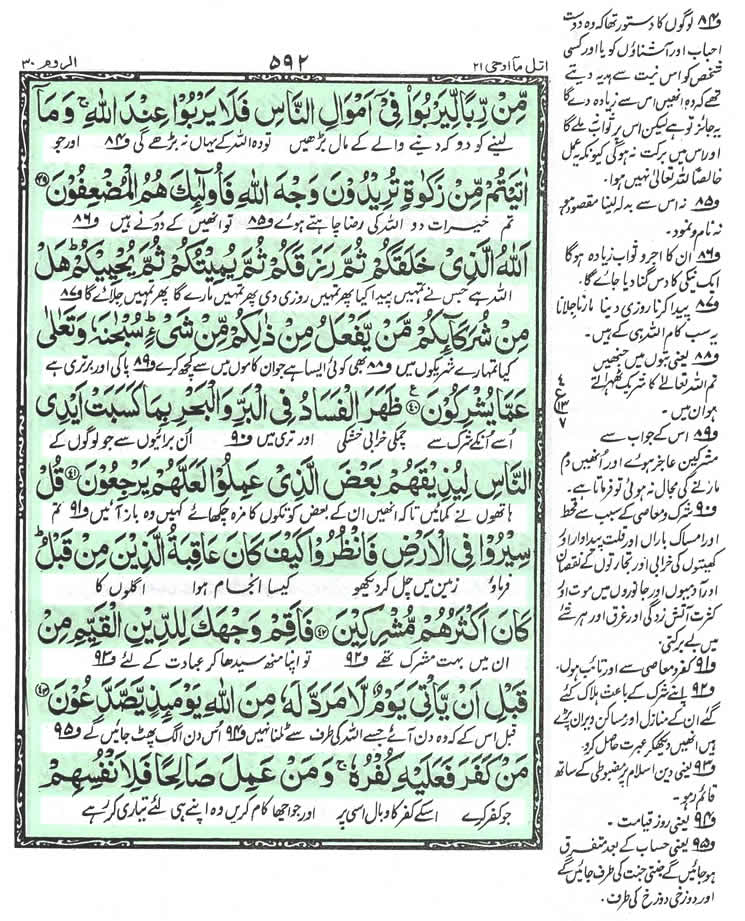 اتل مآ اوحی ۲۱
۵۹۲
الروم ۳۰
مِّنْ رِّبًا لِّيَرْبُوَا۟ فِىْٓ اَمْوَالِ النَّاسِ فَلَا يَرْبُوْا عِنْدَ اللّٰهِ ۚ وَمَآ
لینے کو دو کہ دینے والے کے مال بڑھیں تو وہ اللہ کے یہاں نہ بڑھے گی و۸۴ اور جو
اٰتَيْتُمْ مِّنْ زَكٰوةٍ تُرِيْدُوْنَ وَجْهَ اللّٰهِ فَاُولٰٓئِكَ هُمُ الْمُضْعِفُوْنَ ۳۹
تم خیرات دو اللہ کی رضا چاہتے ہوئے و۸۵ تو انھیں کے دُونے ہیں و۸۶
اَللّٰهُ الَّذِىْ خَلَقَكُمْ ثُمَّ رَزَقَكُمْ ثُمَّ يُمِيْتُكُمْ ثُمَّ يُحْيِيْكُمْ ؕ هَلْ
اللہ ہے جس نے تمہیں پیدا کیا پھر تمہیں روزی دی پھر تمہیں مارے گا پھر تمہیں جلائے گا و۸۷
مِنْ شُرَكَآئِكُمْ مَّنْ يَّفْعَلُ مِنْ ذٰلِكُمْ مِّنْ شَىْءٍ ؕ سُبْحٰنَهٗ وَتَعٰلٰى
کیا تمہارے شریکوں میں و۸۸ بھی کوئی ایسا ہے جو ان کاموں میں سے کچھ کرے و۸۹ پاکی اور برتری ہے
عَمَّا يُشْرِكُوْنَ ۴۰ ظَهَرَ الْفَسَادُ فِى الْبَرِّ وَالْبَحْرِ بِمَا كَسَبَتْ اَيْدِى
اُسے اُنکے شرک سے چمکی خرابی خشکی اور تری میں و۹۰ اُن برائیوں سے جو لوگوں کے
النَّاسِ لِيُذِيْقَهُمْ بَعْضَ الَّذِىْ عَمِلُوْا لَعَلَّهُمْ يَرْجِعُوْنَ ۴۱ قُلْ
ہاتھوں نے کمائیں تاکہ انھیں ان کے بعض کوتکوں کا مزہ چکھائے کہیں وہ باز آئیں و۹۱ تم
سِيْرُوْا فِى الْاَرْضِ فَانْظُرُوْا كَيْفَ كَانَ عَاقِبَةُ الَّذِيْنَ مِنْ قَبْلُ ؕ
فرماؤ زمین میں چل کر دیکھو کیسا انجام ہوا اگلوں کا
كَانَ اَكْثَرُهُمْ مُّشْرِكِيْنَ ۴۲ فَاَقِمْ وَجْهَكَ لِلدِّيْنِ الْقَيِّمِ مِنْ
ان میں بہت مشرک تھے و۹۲ تو اپنا منہ سیدھا کر عبادت کے لئے و۹۳
قَبْلِ اَنْ يَّاْتِىَ يَوْمٌ لَّا مَرَدَّ لَهٗ مِنَ اللّٰهِ يَوْمَئِذٍ يَّصَّدَّعُوْنَ ۴۳
قبل اس کے کہ وہ دن آئے جسے اللہ کی طرف سے ٹلنا نہیں و۹۴ اُس دن الگ پھٹ جائیں گے و۹۵
مَنْ كَفَرَ فَعَلَيْهِ كُفْرُهٗ ۚ وَمَنْ عَمِلَ صَالِحًا فَلِاَنْفُسِهِمْ
جو کفر کرے اسکے کفر کا وبال اسی پر اور جو اچھا کام کریں وہ اپنے ہی لئے تیاری کر رہے
و۸۴ لوگوں کا دستور تھا کہ وہ دوست
احباب اور آشناؤں کو یا اور کسی
شخص کو اس نیت سے ہدیہ دیتے
تھے کہ وہ انھیں اس سے زیادہ دے گا
یہ جائز تو ہے لیکن اس پر ثواب نہ ملے گا
اور اس میں برکت نہ ہوگی کیونکہ یہ عمل
خالصاً للہ تعالیٰ نہیں ہوا۔
و۸۵ نہ اس سے بدلہ لینا مقصود ہو
نہ نام و نمود۔
و۸۶ ان کا اجر و ثواب زیادہ ہوگا
ایک نیکی کا دس گنا دیا جائے گا۔
و۸۷ پیدا کرنا روزی دینا مارنا جلانا
یہ سب کام اللہ ہی کے ہیں۔
و۸۸ یعنی بتوں میں جنھیں
تم اللہ تعالیٰ کا شریک ٹھہراتے
ہو ان میں۔
و۸۹ اس کے جواب سے
مشرکین عاجز ہوئے اور انھیں دم
مارنے کی مجال نہ ہوئی تو فرماتا ہے۔
و۹۰ شرک و معاصی کے سبب سے قحط
اور امساک باراں اور قلت پیداوار اور
کھیتوں کی خرابی اور تجارتوں کے نقصان
اور آدمیوں اور جانوروں میں موت اور
کثرت آتش زدگی اور غرق اور ہر شئے
میں بے برکتی۔
و۹۱ کفر و معاصی سے اور تائب ہوں۔
و۹۲ اپنے شرک کے باعث ہلاک کئے
گئے ان کے منازل اور مساکن ویران پڑے
ہیں انھیں دیکھ کر عبرت حاصل کرو۔
و۹۳ یعنی دین اسلام پر مضبوطی کے ساتھ
قائم رہو۔
و۹۴ یعنی روز قیامت۔
و۹۵ یعنی حساب کے بعد متفرق
ہو جائیں گے جنتی جنت کی طرف جائیں گے
اور دوزخی دوزخ کی طرف۔
۴
ع
۱۳
۷